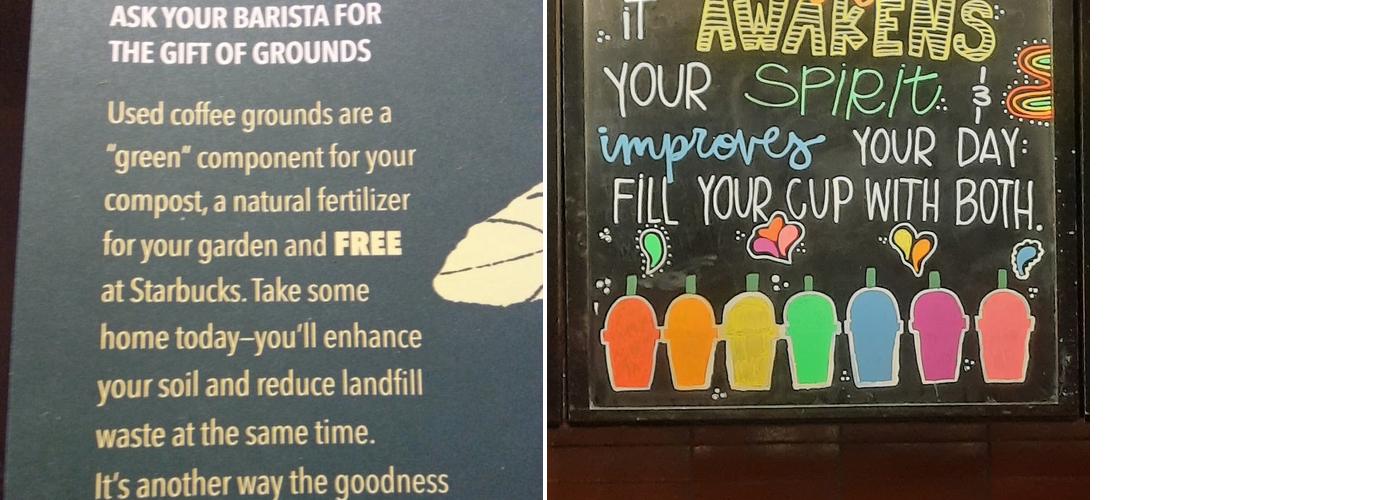 ASK YOUR BARISTA FOR
THE GIFT OF GROUNDS
Used coffee grounds are a
"green" component for your
compost, a natural fertilizer
for your garden and FREE
at Starbucks. Take some
home today–you'll enhance
your soil and reduce landfill
waste at the same time.
It's another way the goodness
iT AWAKENS
YOUR SPiRit &
improves YOUR DAY:
FiLL YOUR CUP WITH BOTH.